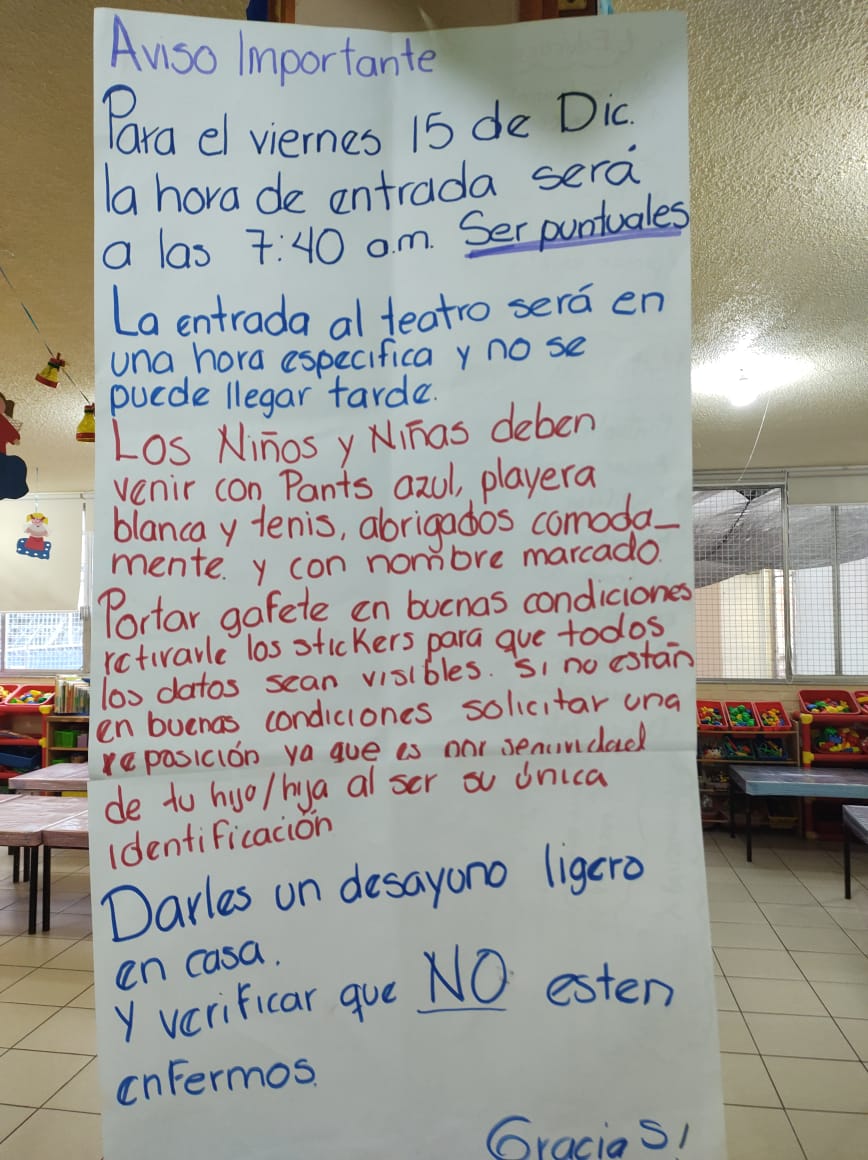 Aviso Importante
Para el viernes 15 de Dic.
la hora de entrada será
a las 7:40 a.m. Ser puntuales
La entrada al teatro será en
una hora especifica y no se
puede llegar tarde.
Los Niños y Niñas deben
venir con Pants azul, playera
blanca y tenis, abrigados comoda-
mente. y con nombre marcado.
Portar gafete en buenas condiciones
retirarle los stickers para que todos
los datos sean visibles. Si no están
en buenas condiciones solicitar una
reposición ya que es por seguridad
de tu hijo/hija al ser su única
identificación
Darles un desayuno ligero
en casa.
y verificar que NO esten
enfermos.
Gracias!